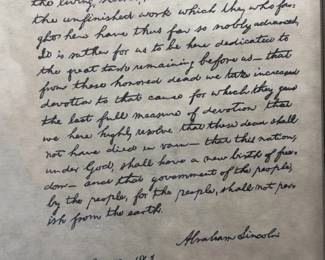 the living,
the unfinished work which they who fou-
ght here have thus far so nobly advanced.
It is rather for us to be here dedicated to
the great task remaining before us — that
from these honored dead we take increased
devotion to that cause for which they gave
the last full measure of devotion that
we here highly resolve that these dead shall
not have died in vain — that this nation,
under God, shall have a new birth of free-
dom — and that government of the people,
by the people, for the people, shall not per-
ish from the earth.
Abraham Lincoln